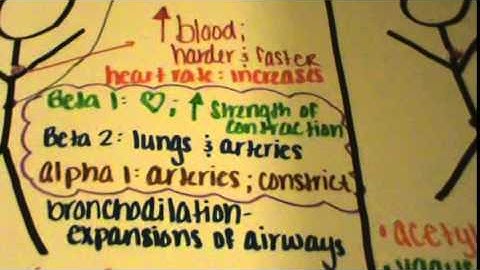 ↑ blood;
harder & faster
heart rate: increases
Beta 1: ♡; ↑ strength of
contraction
Beta 2: lungs & arteries
alpha 1: arteries; constrict
bronchodilation-
expansions of airways
• acetyl